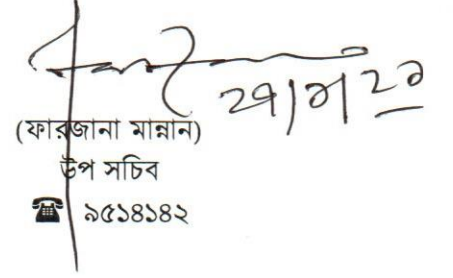 (ফারজানা মান্নান)
উপ সচিব
☎ ৯৫১৪১৪২